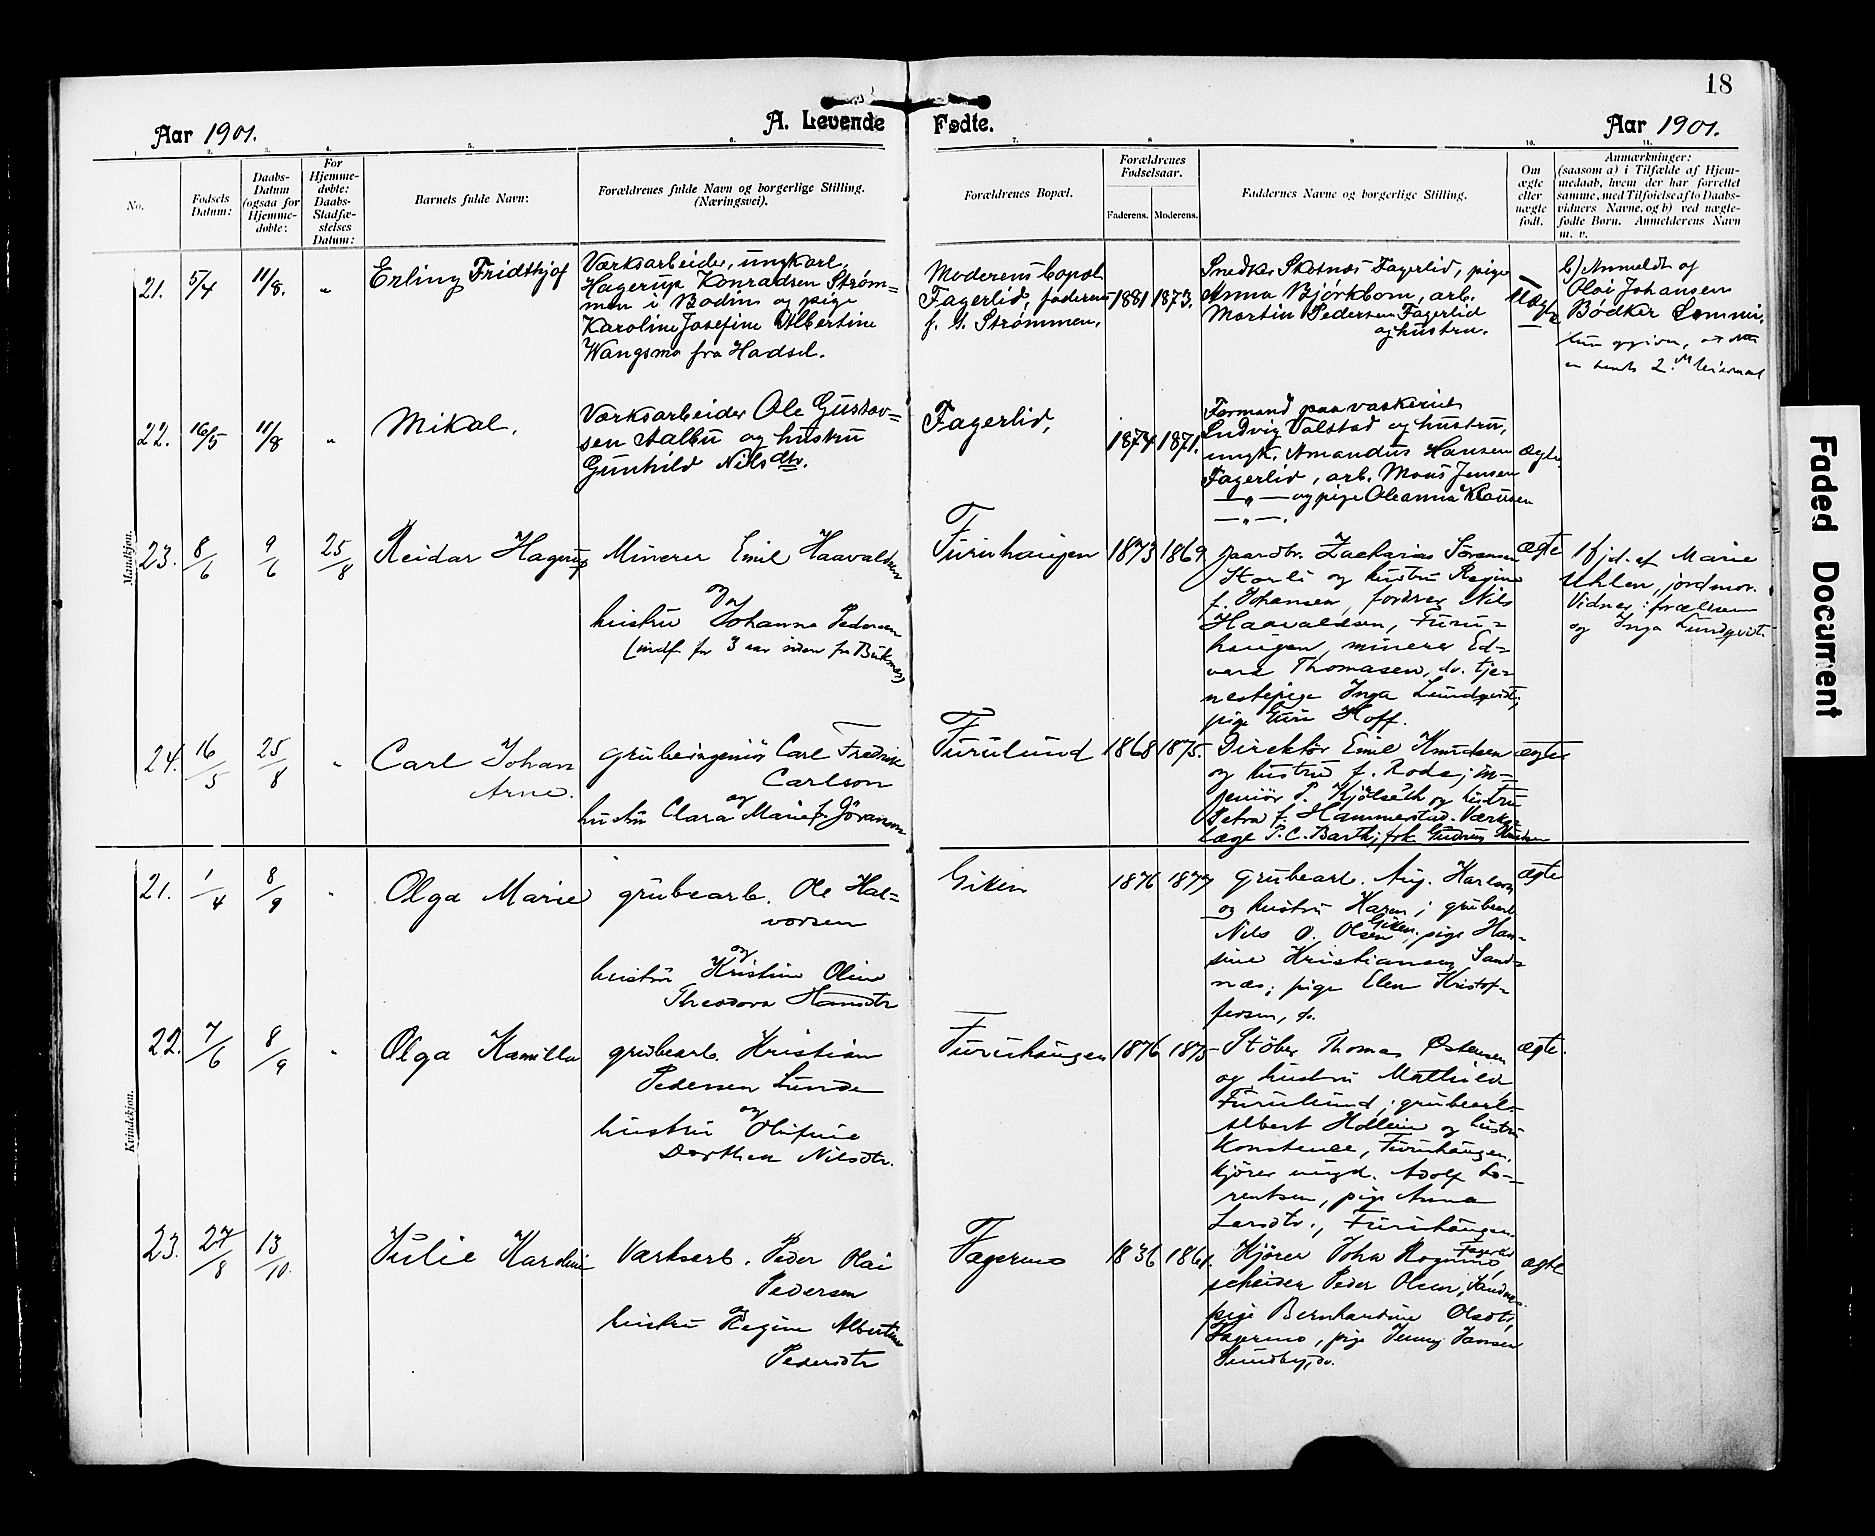 18
Aar 1901.
A. Levende Fødte.
Aar 1901.
1. 2. 3. 4. 5. 6. 7. 8. 9. 10. 11.
No.
Fødsels
Datum:
Daabs-
Datum
(ogsaa for
Hjemme-
døbte:
For
Hjemme-
døbte:
Daabs-
Stadfæ-
stelses
Datum:
Barnets fulde Navn:
Forældrenes fulde Navn og borgerlige Stilling.
(Næringsvei).
Forældrenes Bopæl.
Forældrenes
Fødselsaar.
Faderens.
Moderens.
Faddernes Navne og borgerlige Stilling.
Om
ægte
eller
uægte
født.
Anmærkninger:
(saasom a) i Tilfælde af Hjem-
medaab, hvem der har forrettet
samme, med Tilføielse af to Daabs-
vidners Navne, og b) ved uægte-
fødte Børn. Anmelderens Navn
m. v.
Mandkjøn.
21. 5/4 11/8. „
Erling Fridthjof
Værksarbeider, ungkarl,
Hagerup Konradsen Strøm=
men i Bodin og pige
Karoline Josefine Albertine
Wangsmo fra Hadsel.
Moderens bopæl
Fagerlid, faderens
f. t. Strømmen.
1881 1873.
Snedker Skotnæs Fagerlid, pige
Anna Bjørkbom, arb.
Martin Pedersen Fagerlid
og hustru.
uægte
b) Anmeldt af
Olai Johansen
Bødker
Hun opgiver, at dette
er hendes 2. leiermaal
22. 16/5 11/8 „
Mikal.
Værksarbeider Ole Gustav=
sen Aalbu og hustru
Gunhild Nilsdtr.
Fagerlid,
1874 1871.
Formand paa vaskeriet
Ludvig Valstad og hustru,
ungk. Amandus Hansen
Fagerlid, arb. Mons Jensen
—„— og pige Oleanna Klausen
—„—.
ægte.
23. 8/6 9/6 25/8
Reidar Hagerup
Minerer Emil Haavaldsen
og
hustru Johanna Pedersen
(indf. for 3 aar siden fra
Furuhaugen
1873 1869
Zacharias Sørensen
Storli og hustru Regine
f. Johansen, fordrer Nils
Haavaldsen, Furu=
haugen, minerer Ed=
vard Thomasen, do. tje=
nestepige Inga Lundqvist;
pige Guri Hoff.
ægte
hjd. af Marie
Uhlen, jordmor.
Vidner: forældrene
og Inga Lundqvist
24. 16/5 25/8 „
Carl Johan
Arne.
grubeingeniør Carl Fredrik
Carlson
og
hustru Clara Marie f. Göranson
Furulund
1868 1875.
Direktør Emil Knudsen
og hustru f. Rode; in=
geniør P. Kjølseth og hustru
Petra f. Hammerstad. Værks=
læge P. C. Barth; frk. Gudrun Knudsen
ægte
Kvindekjøn.
21. 1/4 8/9 „
Olga Marie
grubearb. Ole Hal=
vorsen
og
hustru Kristine Oline
Theodora Hansdtr
Giken
1876 1877
grubearb. Aug. Karlson
og hustru Karen; grubearb.
Nils O. Olsen Giken; pige Han=
sine Kristiansen, Sand=
næs; pige Elen Kristof=
fersen, do.
ægte
22. 7/6 8/9 „
Olga Kamilla
grubearb. Kristian
Pedersen Lunde
og
hustru Olufine
Dorthea Nilsdtr.
Furuhaugen
1876 1875
Støber Thomas Østensen
og hustru Mathilde
Furulund; grubearb.
Albert Hollein og hustru
Konstanse, Furuhaugen,
kjører ungd. Adolf Lo=
rentsen, pige Anna
Larsdtr., Furuhaugen.
ægte.
23. 27/8 13/10.
Julie Karoline
Værksarb. Peder Olai
Pedersen
og
hustru Regine Albertine
Pedersdtr
Fagermo
1836 1861.
Kjører Johan Rognmo, Fagerli
scheider Peder Olsen, Sandnes.
pige Bernhardine Olsdtr,
Fagermo, pige Jenny Jansen
Sundby, do.
ægte
Faded Document